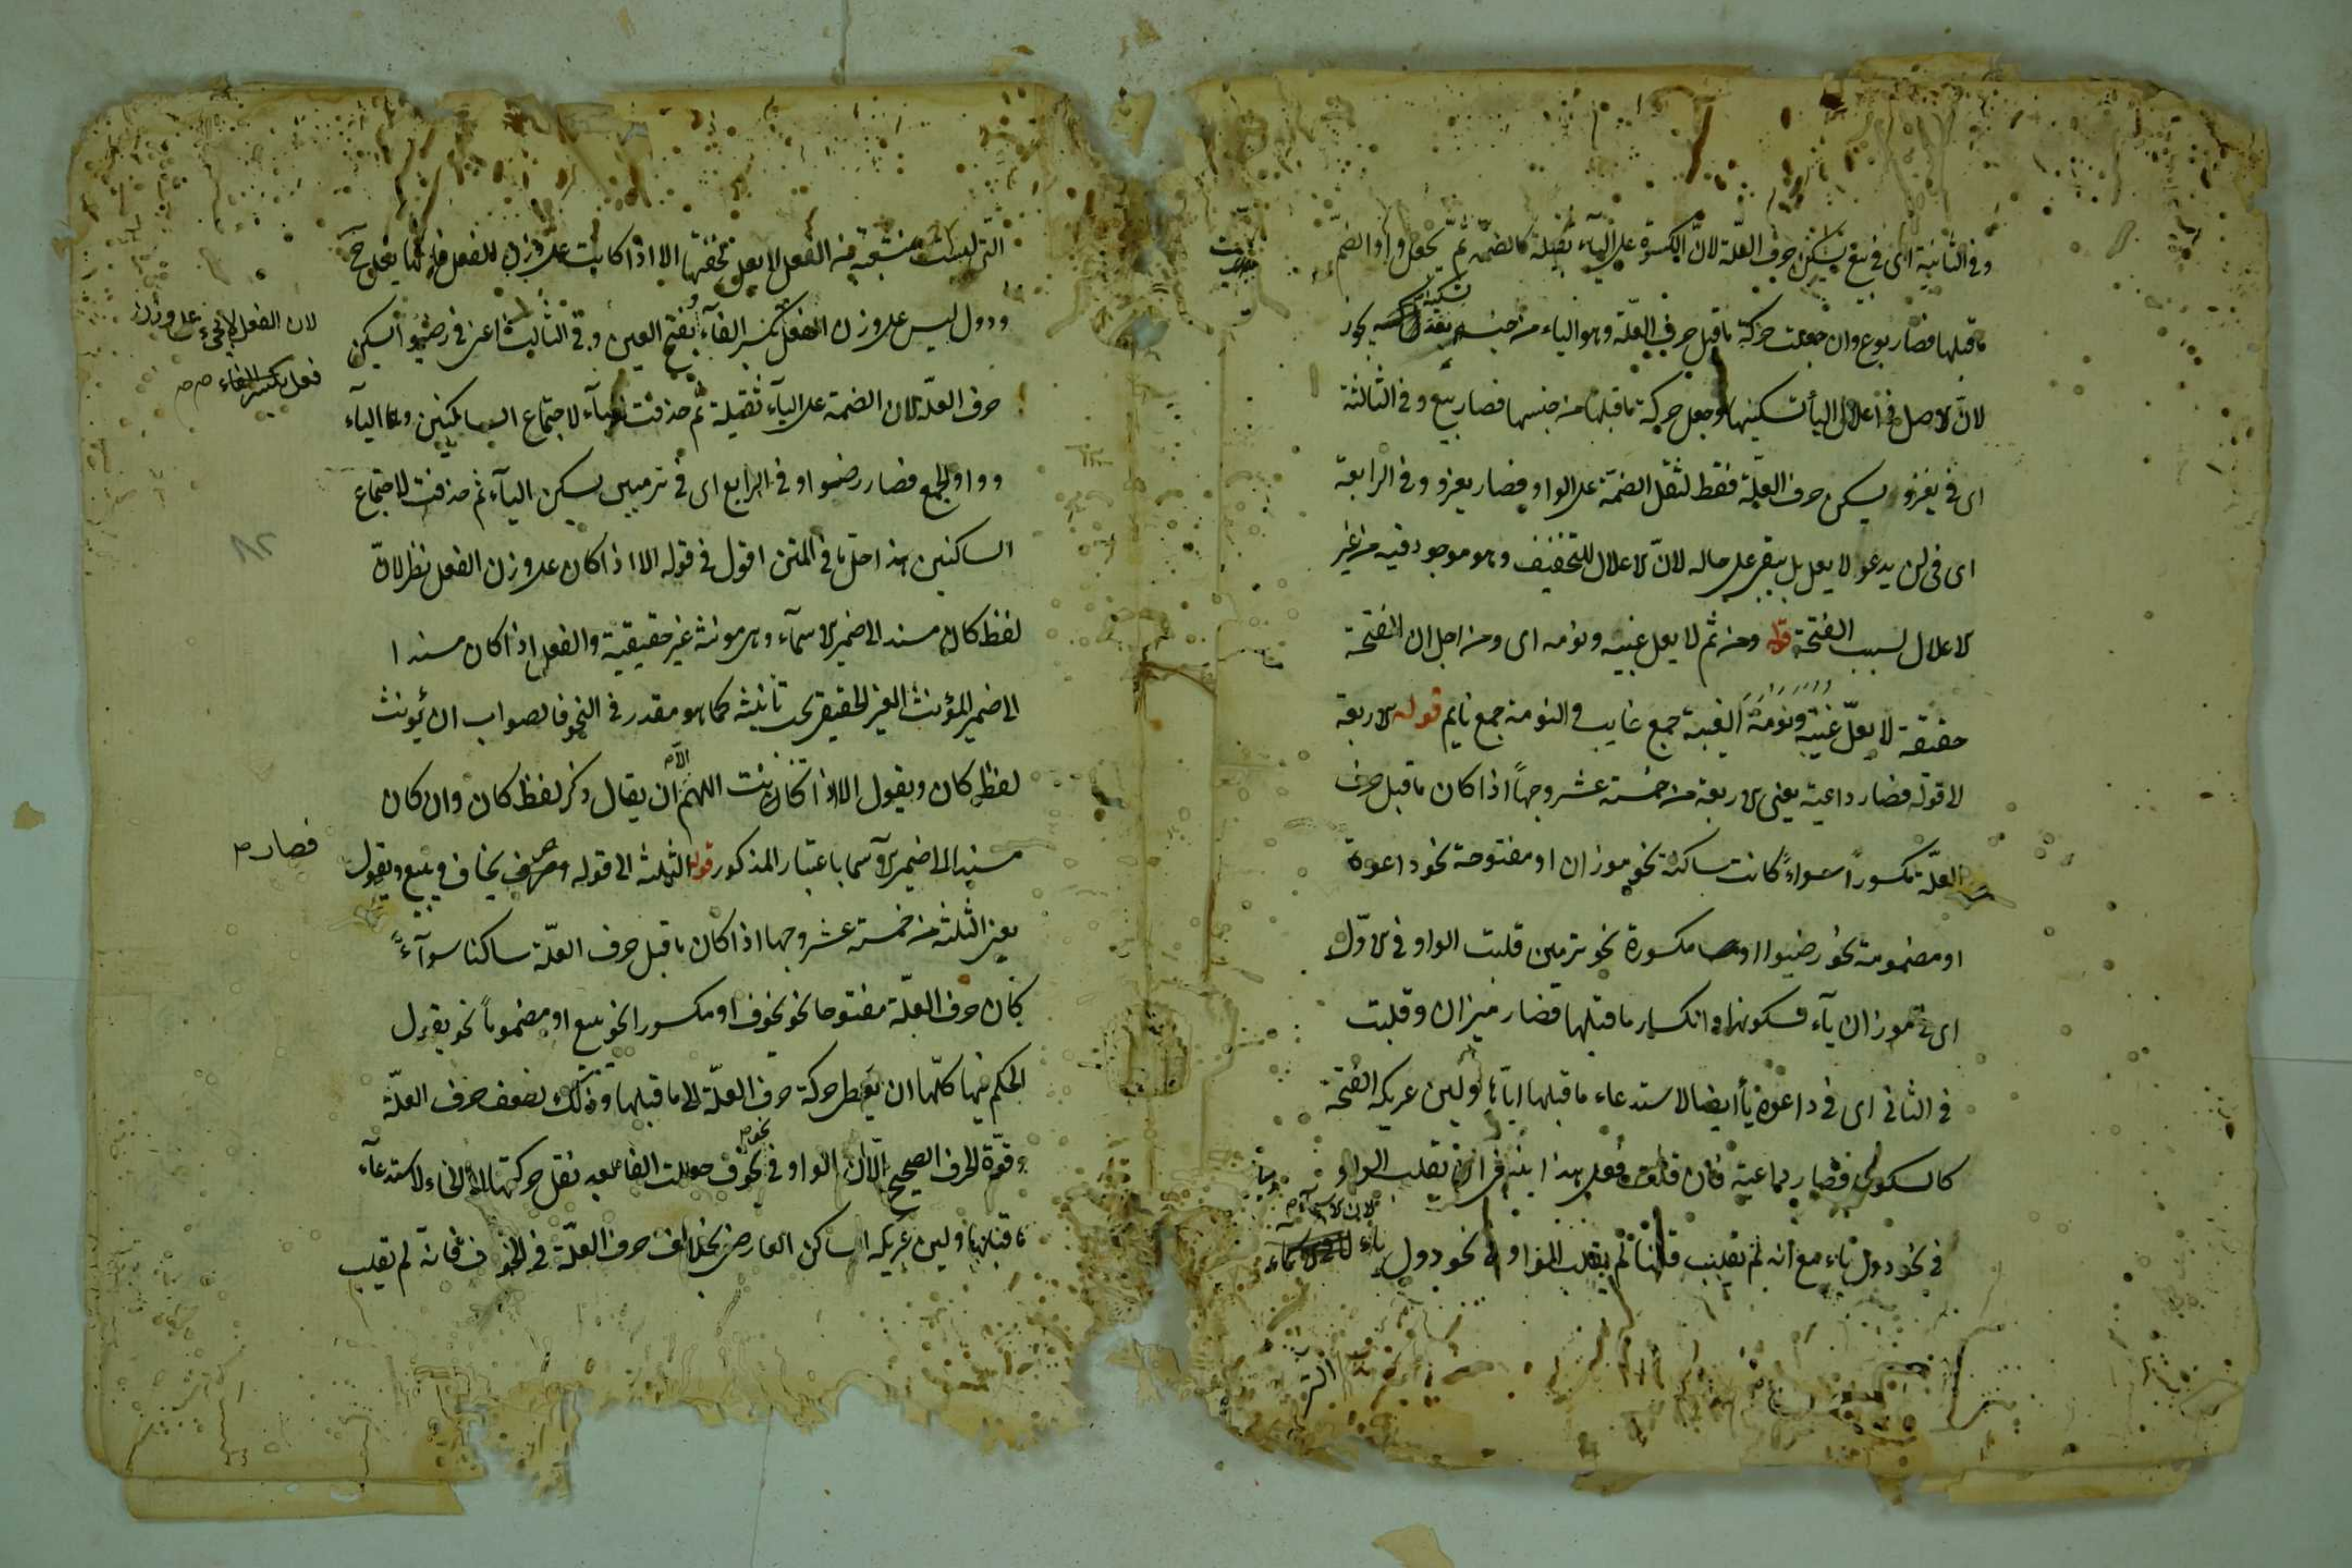 وفى الثانية اى فى بيع يسكن حرف العلّة لانّ الكسرة على الياء ثقيلة كالضمّة ثمّ تجعل واوا لضمّ
ما قبلها فصار بوع وان جعلت حركة ما قبل حرف العلّة وهو الياء من جنسه بعد تسكينه يجوز
لانّ الاصل فى اعلال الياء تسكينها وجعل حركة ما قبلها من جنسها فصار بيع وفى الثالثة
اى فى يغزو يسكن حرف العلّة فقط لثقل الضمة على الواو فصار يغزو وفى الرابعة
اى فى لن يدعو لا يعل بل يبقى على حاله لانّ الاعلال للتخفيف وهو موجود فيه من غير
الاعلال بسبب الفتحة قوله ومن ثم لا يعل غيبة ونومة اى ومن اجل ان الفتحة
خفيفة لا يعلّ غيبة ونومة الغيبة جمع غايب والنومة جمع نايم قوله الاربعة
الى قوله فصار داعية يعنى الاربعة من خمسة عشر وجهاً اذا كان ما قبل حرف
العلّة مكسوراً سواءً كانت ساكنة نحو موزان او مفتوحة نحو داعوة
او مضمومة نحو رضيوا او مكسورة نحو ترميين قلبت الواو فى الاوّل
اى فى موزان ياء لسكونها وانكسار ما قبلها فصار ميزان وقلبت
فى الثانى اى فى داعوة ياء ايضا لاستدعاء ما قبلها ايّاها ولين عريكة الفتحة
كالسكون فصار داعية فان قلت فعلى هذا ينبغى ان يقلب الواو
فى نحو دول ياء مع انه لم تقلب قلنا لم يقلب الواو فى نحو دول ياء لان الاسماء
التى
التى ليست بمشتقة من الفعل لا يعل لخفتها الا اذا كانت على وزن الفعل
ودول ليس على وزن الفعل بكسر الفاء وبفتح العين وفى الثالثة اعنى فى رضيوا اسكن
لان الفعل لا يجىء على وزن
فعل بكسر الفاء صح
حرف العلّة لان الضمة على الياء ثقيلة ثم حذفت الياء لاجتماع الساكنين وهما الياء
وواو الجمع فصار رضوا وفى الرابع اى فى ترميين يسكن الياء ثم حذفت لاجتماع
الساكنين هذا حلّ ما فى المتن اقول فى قوله الا اذا كان على وزن الفعل نظر لانّ
لفظ كان مسند الى ضمير الاسماء وهى مونثة غير حقيقية والفعل اذا كان مسندا
الى ضمير المؤنث الغير الحقيقى يجب تأنيثه كما هو مقدر فى النحو فالصواب ان يؤنث
لفظ كان ويقول الا اذا كانت اللهم الا ان يقال ذكر لفظ كان وان كان
مسندا الى ضمير الاسماء باعتبار المذكور قوله الثلثة الى قوله يخاف ويبيع ويقول
فصار
يعنى الثلثة من خمسة عشر وجها اذا كان ما قبل حرف العلّة ساكنا سواءً
كان حرف العلّة مفتوحا نحو يخوف او مكسورا نحو يبيع او مضموماً نحو يقول
الحكم فيها كلّها ان يعطى حركة حرف العلّة الى ما قبلها وذلك لضعف حرف العلّة
وقوّة الحرف الصحيح الّا ان الواو فى نحو يخوف جعلت الفا بعد نقل حركتها الى الخاء لاستدعاء
ما قبلها ولين عريكة الساكن العارض بخلاف حرف العلّة فى الخوف فانه لم يقلب
٨٢